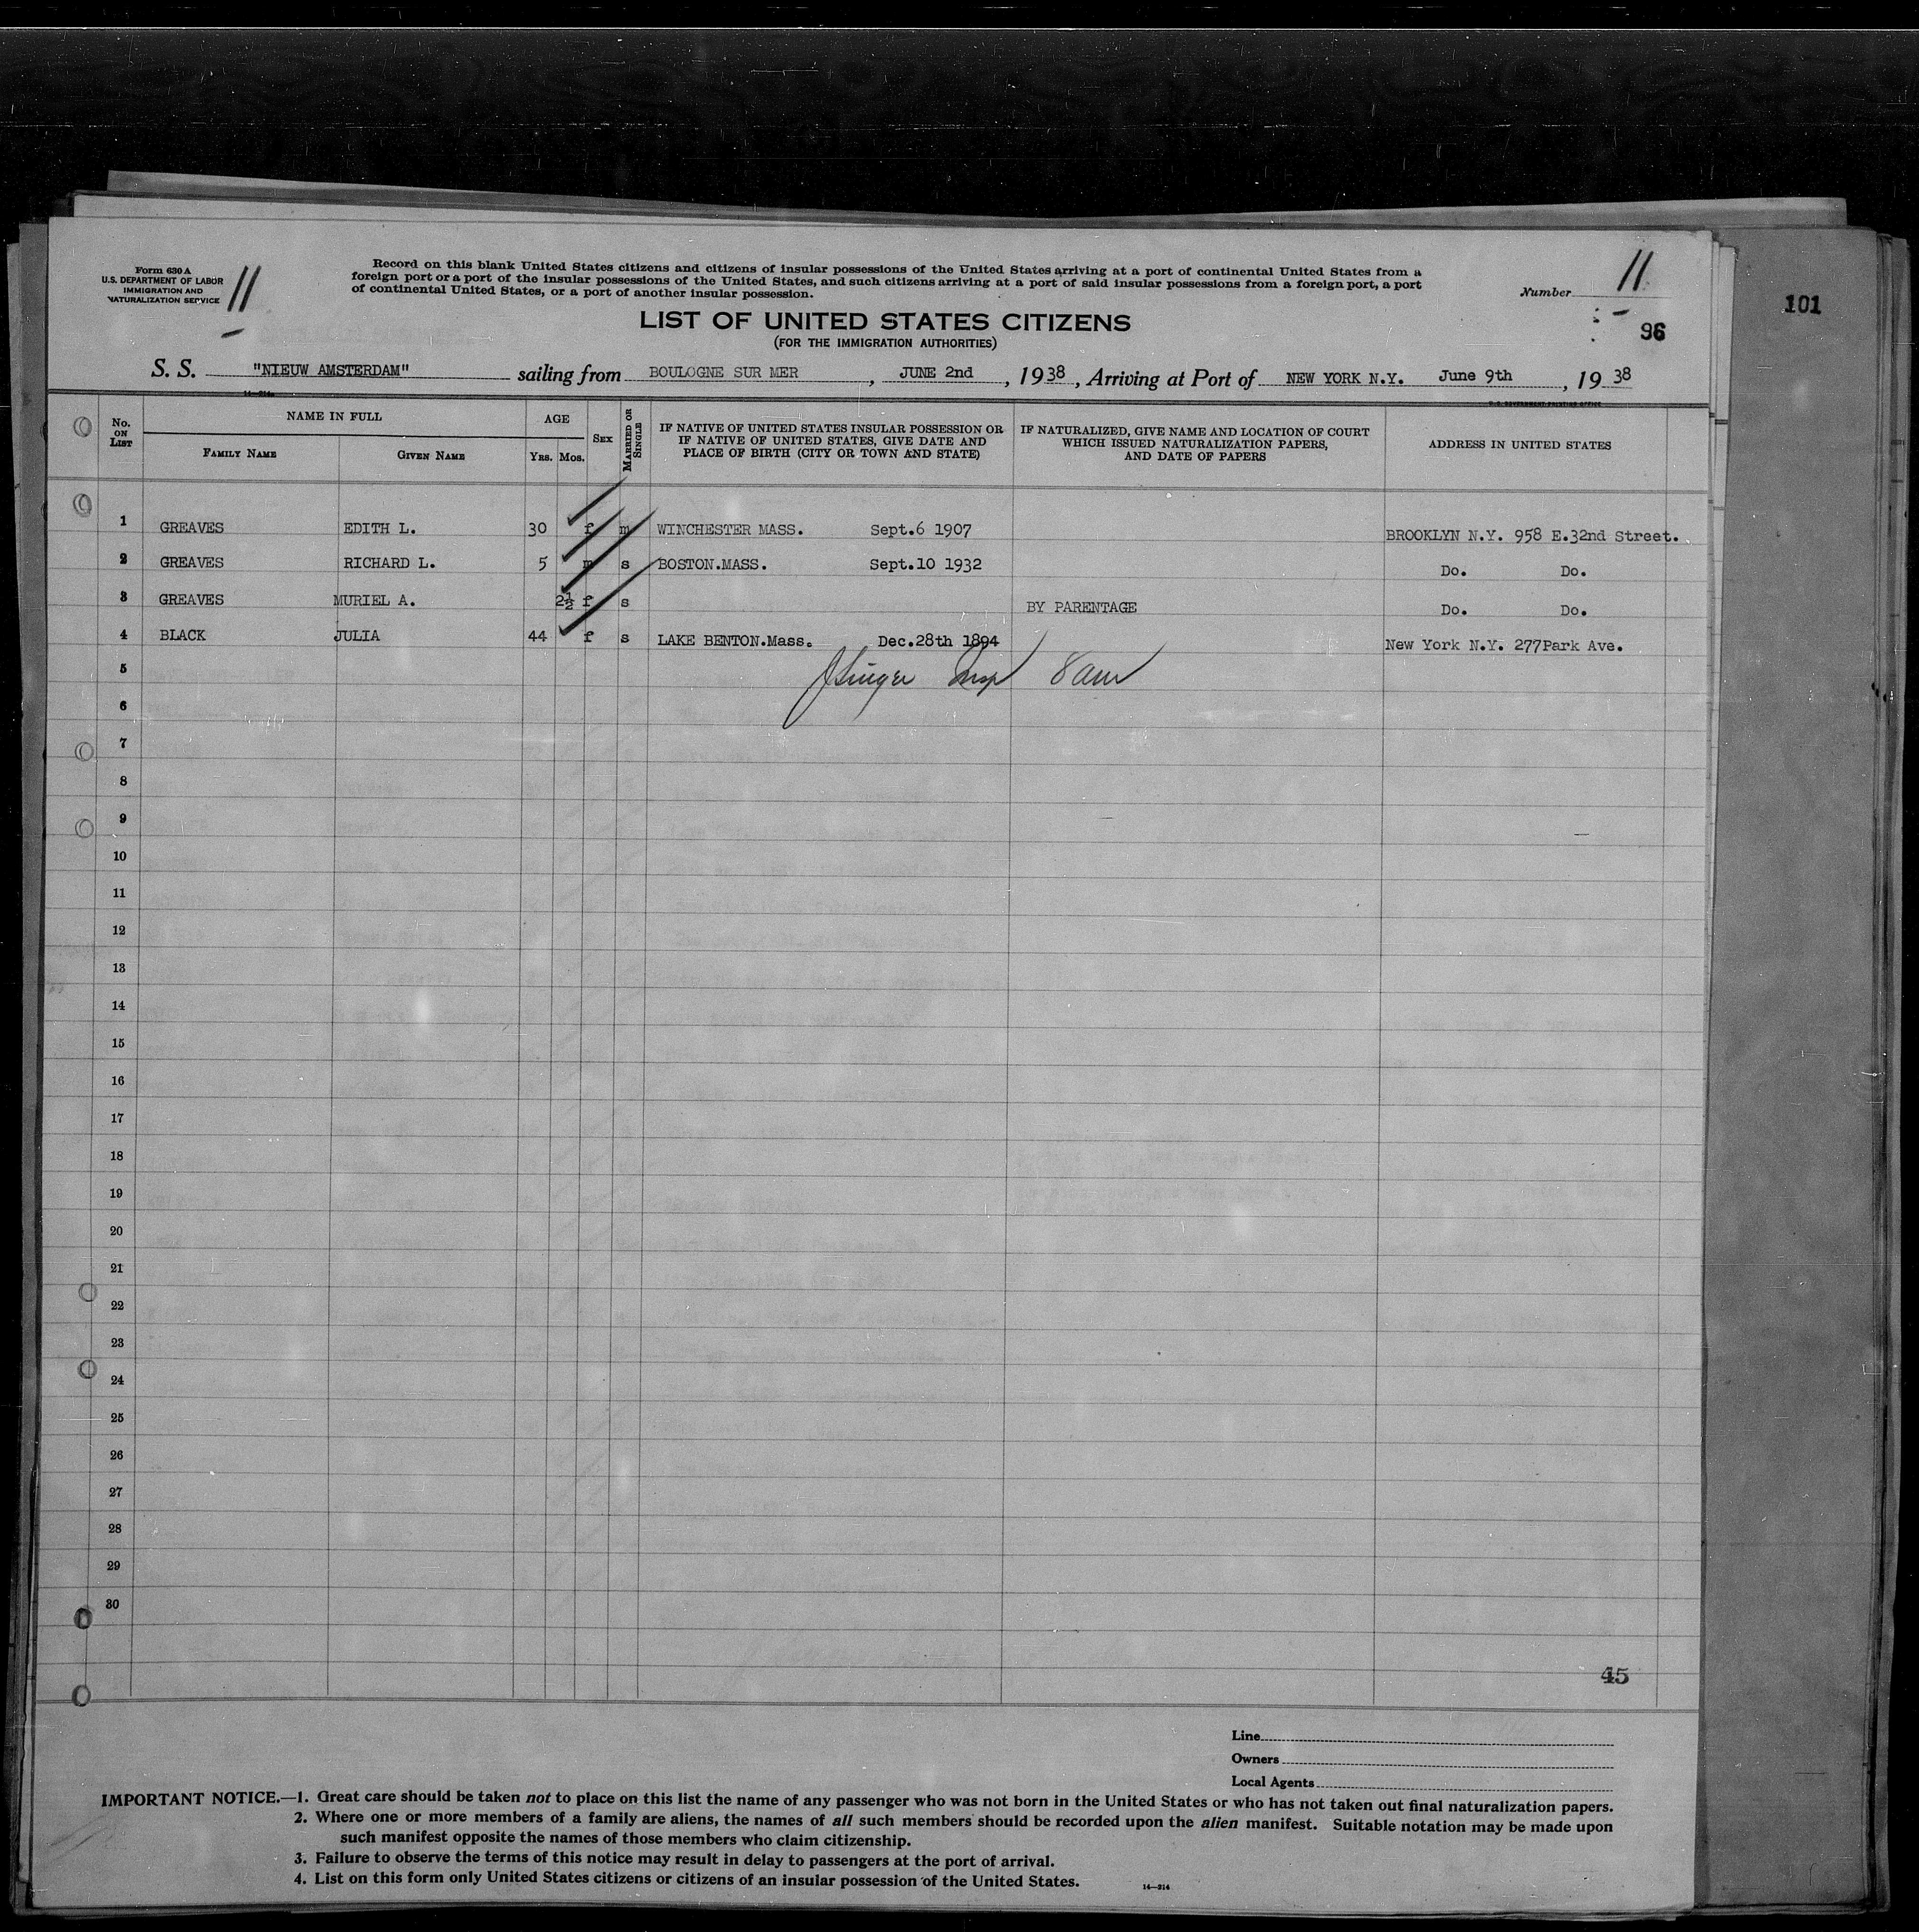 Form 630 A
U.S. DEPARTMENT OF LABOR
IMMIGRATION AND
NATURALIZATION SERVICE
11
Record on this blank United States citizens and citizens of insular possessions of the United States arriving at a port of continental United States from a
foreign port or a port of the insular possessions of the United States, and such citizens arriving at a port of said insular possessions from a foreign port, a port
of continental United States, or a port of another insular possession.
Number 11
101
96
LIST OF UNITED STATES CITIZENS
(FOR THE IMMIGRATION AUTHORITIES)
S. S. "NIEUW AMSTERDAM" sailing from BOULOGNE SUR MER, JUNE 2nd, 1938, Arriving at Port of NEW YORK N.Y. June 9th, 1938
14—214
U. S. GOVERNMENT PRINTING OFFICE
No. ON LIST
NAME IN FULL
FAMILY NAME
GIVEN NAME
AGE
YRS. MOS.
SEX
MARRIED OR SINGLE
IF NATIVE OF UNITED STATES INSULAR POSSESSION OR
IF NATIVE OF UNITED STATES, GIVE DATE AND
PLACE OF BIRTH (CITY OR TOWN AND STATE)
IF NATURALIZED, GIVE NAME AND LOCATION OF COURT
WHICH ISSUED NATURALIZATION PAPERS,
AND DATE OF PAPERS
ADDRESS IN UNITED STATES
1 GREAVES EDITH L. 30 f m WINCHESTER MASS. Sept.6 1907 BROOKLYN N.Y. 958 E.32nd Street.
2 GREAVES RICHARD L. 5 m s BOSTON.MASS. Sept.10 1932 Do. Do.
3 GREAVES MURIEL A. 2½ f s BY PARENTAGE Do. Do.
4 BLACK JULIA 44 f s LAKE BENTON.Mass. Dec.28th 1894 New York N.Y. 277Park Ave.
5 Insp 8 am
6
7
8
9
10
11
12
13
14
15
16
17
18
19
20
21
22
23
24
25
26
27
28
29
30
45
Line
Owners
Local Agents
IMPORTANT NOTICE.—1. Great care should be taken not to place on this list the name of any passenger who was not born in the United States or who has not taken out final naturalization papers.
2. Where one or more members of a family are aliens, the names of all such members should be recorded upon the alien manifest. Suitable notation may be made upon
such manifest opposite the names of those members who claim citizenship.
3. Failure to observe the terms of this notice may result in delay to passengers at the port of arrival.
4. List on this form only United States citizens or citizens of an insular possession of the United States.
14—214